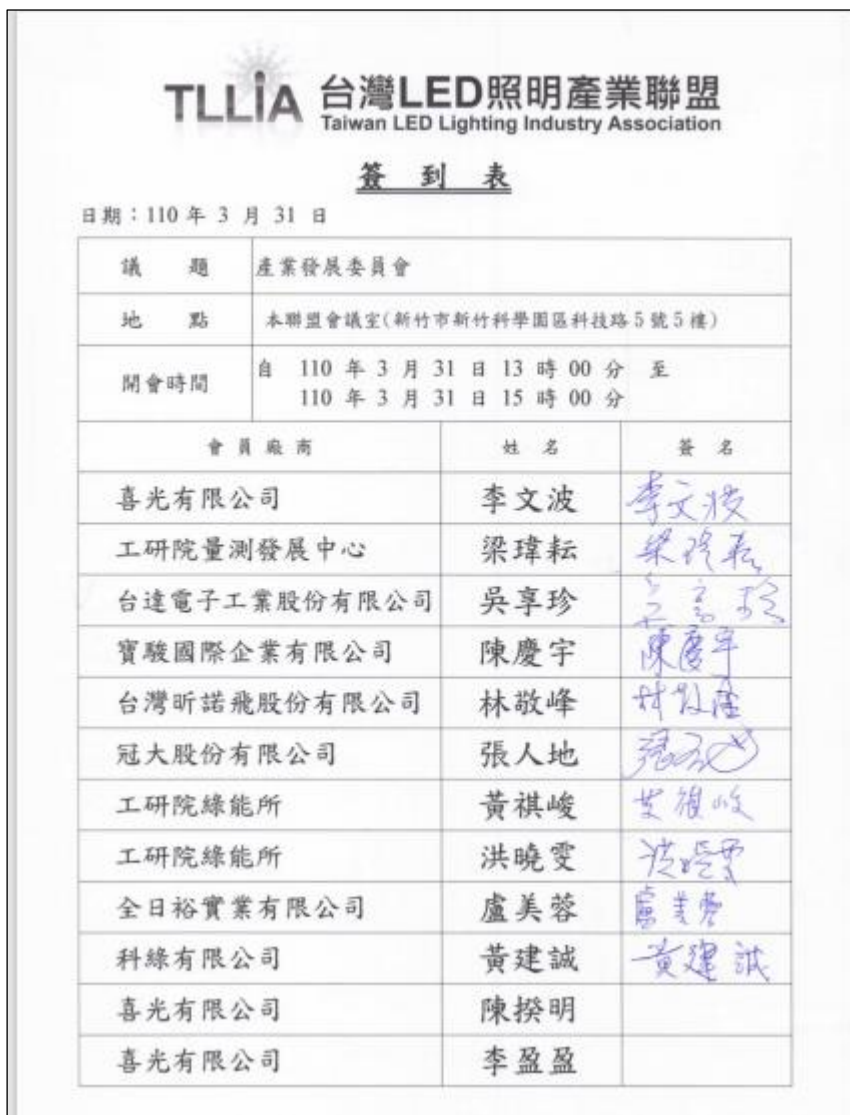 TLLiA 台灣LED照明產業聯盟
Taiwan LED Lighting Industry Association
簽 到 表
日期：110 年 3 月 31 日
議 題 產業發展委員會
地 點 本聯盟會議室(新竹市新竹科學園區科技路5號5樓)
開會時間 自 110 年 3 月 31 日 13 時 00 分 至
110 年 3 月 31 日 15 時 00 分
會 員 廠 商 姓 名 簽 名
喜光有限公司 李文波 李文波
工研院量測發展中心 梁瑋耘 梁瑋耘
台達電子工業股份有限公司 吳享珍 吳享珍
寶駿國際企業有限公司 陳慶宇 陳慶宇
台灣昕諾飛股份有限公司 林敬峰 林敬峰
冠大股份有限公司 張人地
工研院綠能所 黃祺峻 黃祺峻
工研院綠能所 洪曉雯 洪曉雯
全日裕實業有限公司 盧美蓉 盧美蓉
科綠有限公司 黃建誠 黃建誠
喜光有限公司 陳揆明
喜光有限公司 李盈盈